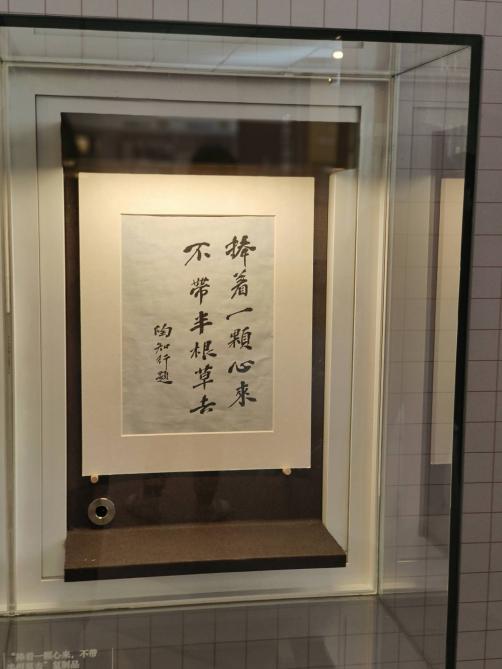 捧着一顆心來
不帶半根草去
陶知行題
“捧着一颗心来，不带
半根草去”复制品